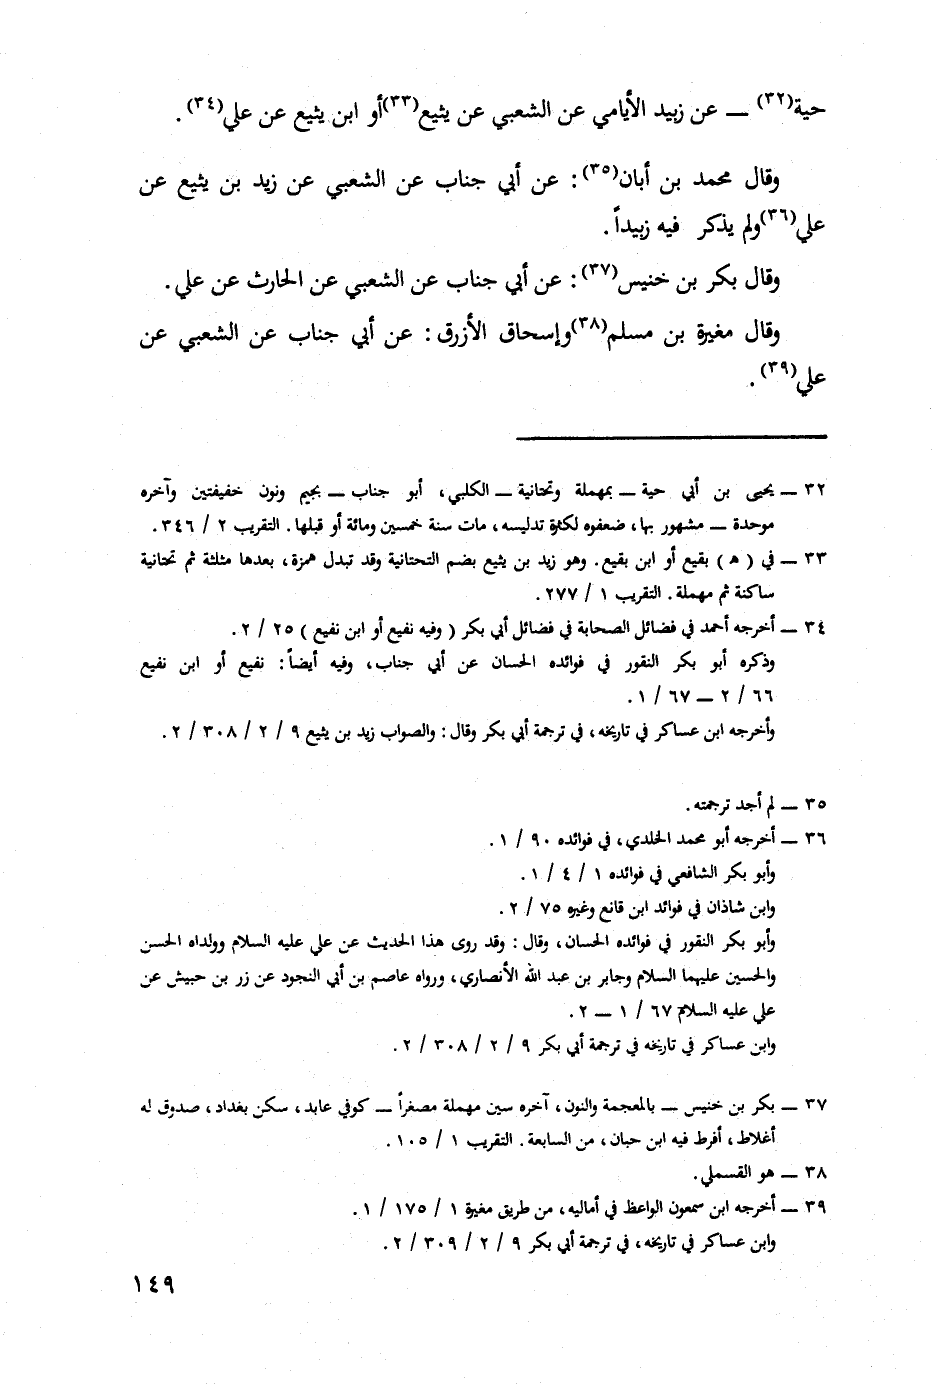 حية(٣٢) ــ عن زبيد الأيامي عن الشعبي عن يثيع(٣٣)أو ابن يثيع عن علي(٣٤).
وقال محمد بن أبان(٣٥): عن أبي جناب عن الشعبي عن زيد بن يثيع عن
علي(٣٦)ولم يذكر فيه زبيداً.
وقال بكر بن خنيس(٣٧): عن أبي جناب عن الشعبي عن الحارث عن علي.
وقال مغيرة بن مسلم(٣٨)وإسحاق الأزرق: عن أبي جناب عن الشعبي عن
علي(٣٩).
٣٢ ــ يحيى بن أبي حية ــ بمهملة وتحتانية ــ الكلبي، أبو جناب ــ بجيم ونون خفيفتين وآخره
موحدة ــ مشهور بها، ضعفوه لكثرة تدليسه، مات سنة خمسين ومائة أو قبلها. التقريب ٢ / ٣٤٦.
٣٣ ــ في ( هـ ) بقيع أو ابن بقيع. وهو زيد بن يثيع بضم التحتانية وقد تبدل همزة، بعدها مثلثة ثم تحتانية
ساكنة ثم مهملة. التقريب ١ / ٢٧٧.
٣٤ ــ أخرجه أحمد في فضائل الصحابة في فضائل أبي بكر ( وفيه نفيع أو ابن نفيع ) ٢٥ / ٢.
وذكره أبو بكر النقور في فوائده الحسان عن أبي جناب، وفيه أيضاً: نفيع أو ابن نفيع
٦٦ / ٢ ــ ٦٧ / ١.
وأخرجه ابن عساكر في تاريخه، في ترجمة أبي بكر وقال: والصواب زيد بن يثيع ٩ / ٢ / ٣٠٨ / ٢.
٣٥ ــ لم أجد ترجمته.
٣٦ ــ أخرجه أبو محمد الخلدي، في فوائده ٩٠ / ١.
وأبو بكر الشافعي في فوائده ١ / ٤ / ١.
وابن شاذان في فوائد ابن قانع وغيره ٧٥ / ٢.
وأبو بكر النقور في فوائده الحسان، وقال: وقد روى هذا الحديث عن علي عليه السلام وولداه الحسن
والحسين عليهما السلام وجابر بن عبد الله الأنصاري، ورواه عاصم بن أبي النجود عن زر بن حبيش عن
علي عليه السلام ٦٧ / ١ ــ ٢.
وابن عساكر في تاريخه في ترجمة أبي بكر ٩ / ٢ / ٣٠٨ / ٢.
٣٧ ــ بكر بن خنيس ــ بالمعجمة والنون، آخره سين مهملة مصغراً ــ كوفي عابد، سكن بغداد، صدوق له
أغلاط، أفرط فيه ابن حبان، من السابعة. التقريب ١ / ١٠٥.
٣٨ ــ هو القسملي.
٣٩ ــ أخرجه ابن سمعون الواعظ في أماليه، من طريق مغيرة ١ / ١٧٥ / ١.
وابن عساكر في تاريخه، في ترجمة أبي بكر ٩ / ٢ / ٣٠٩ / ٢.
١٤٩